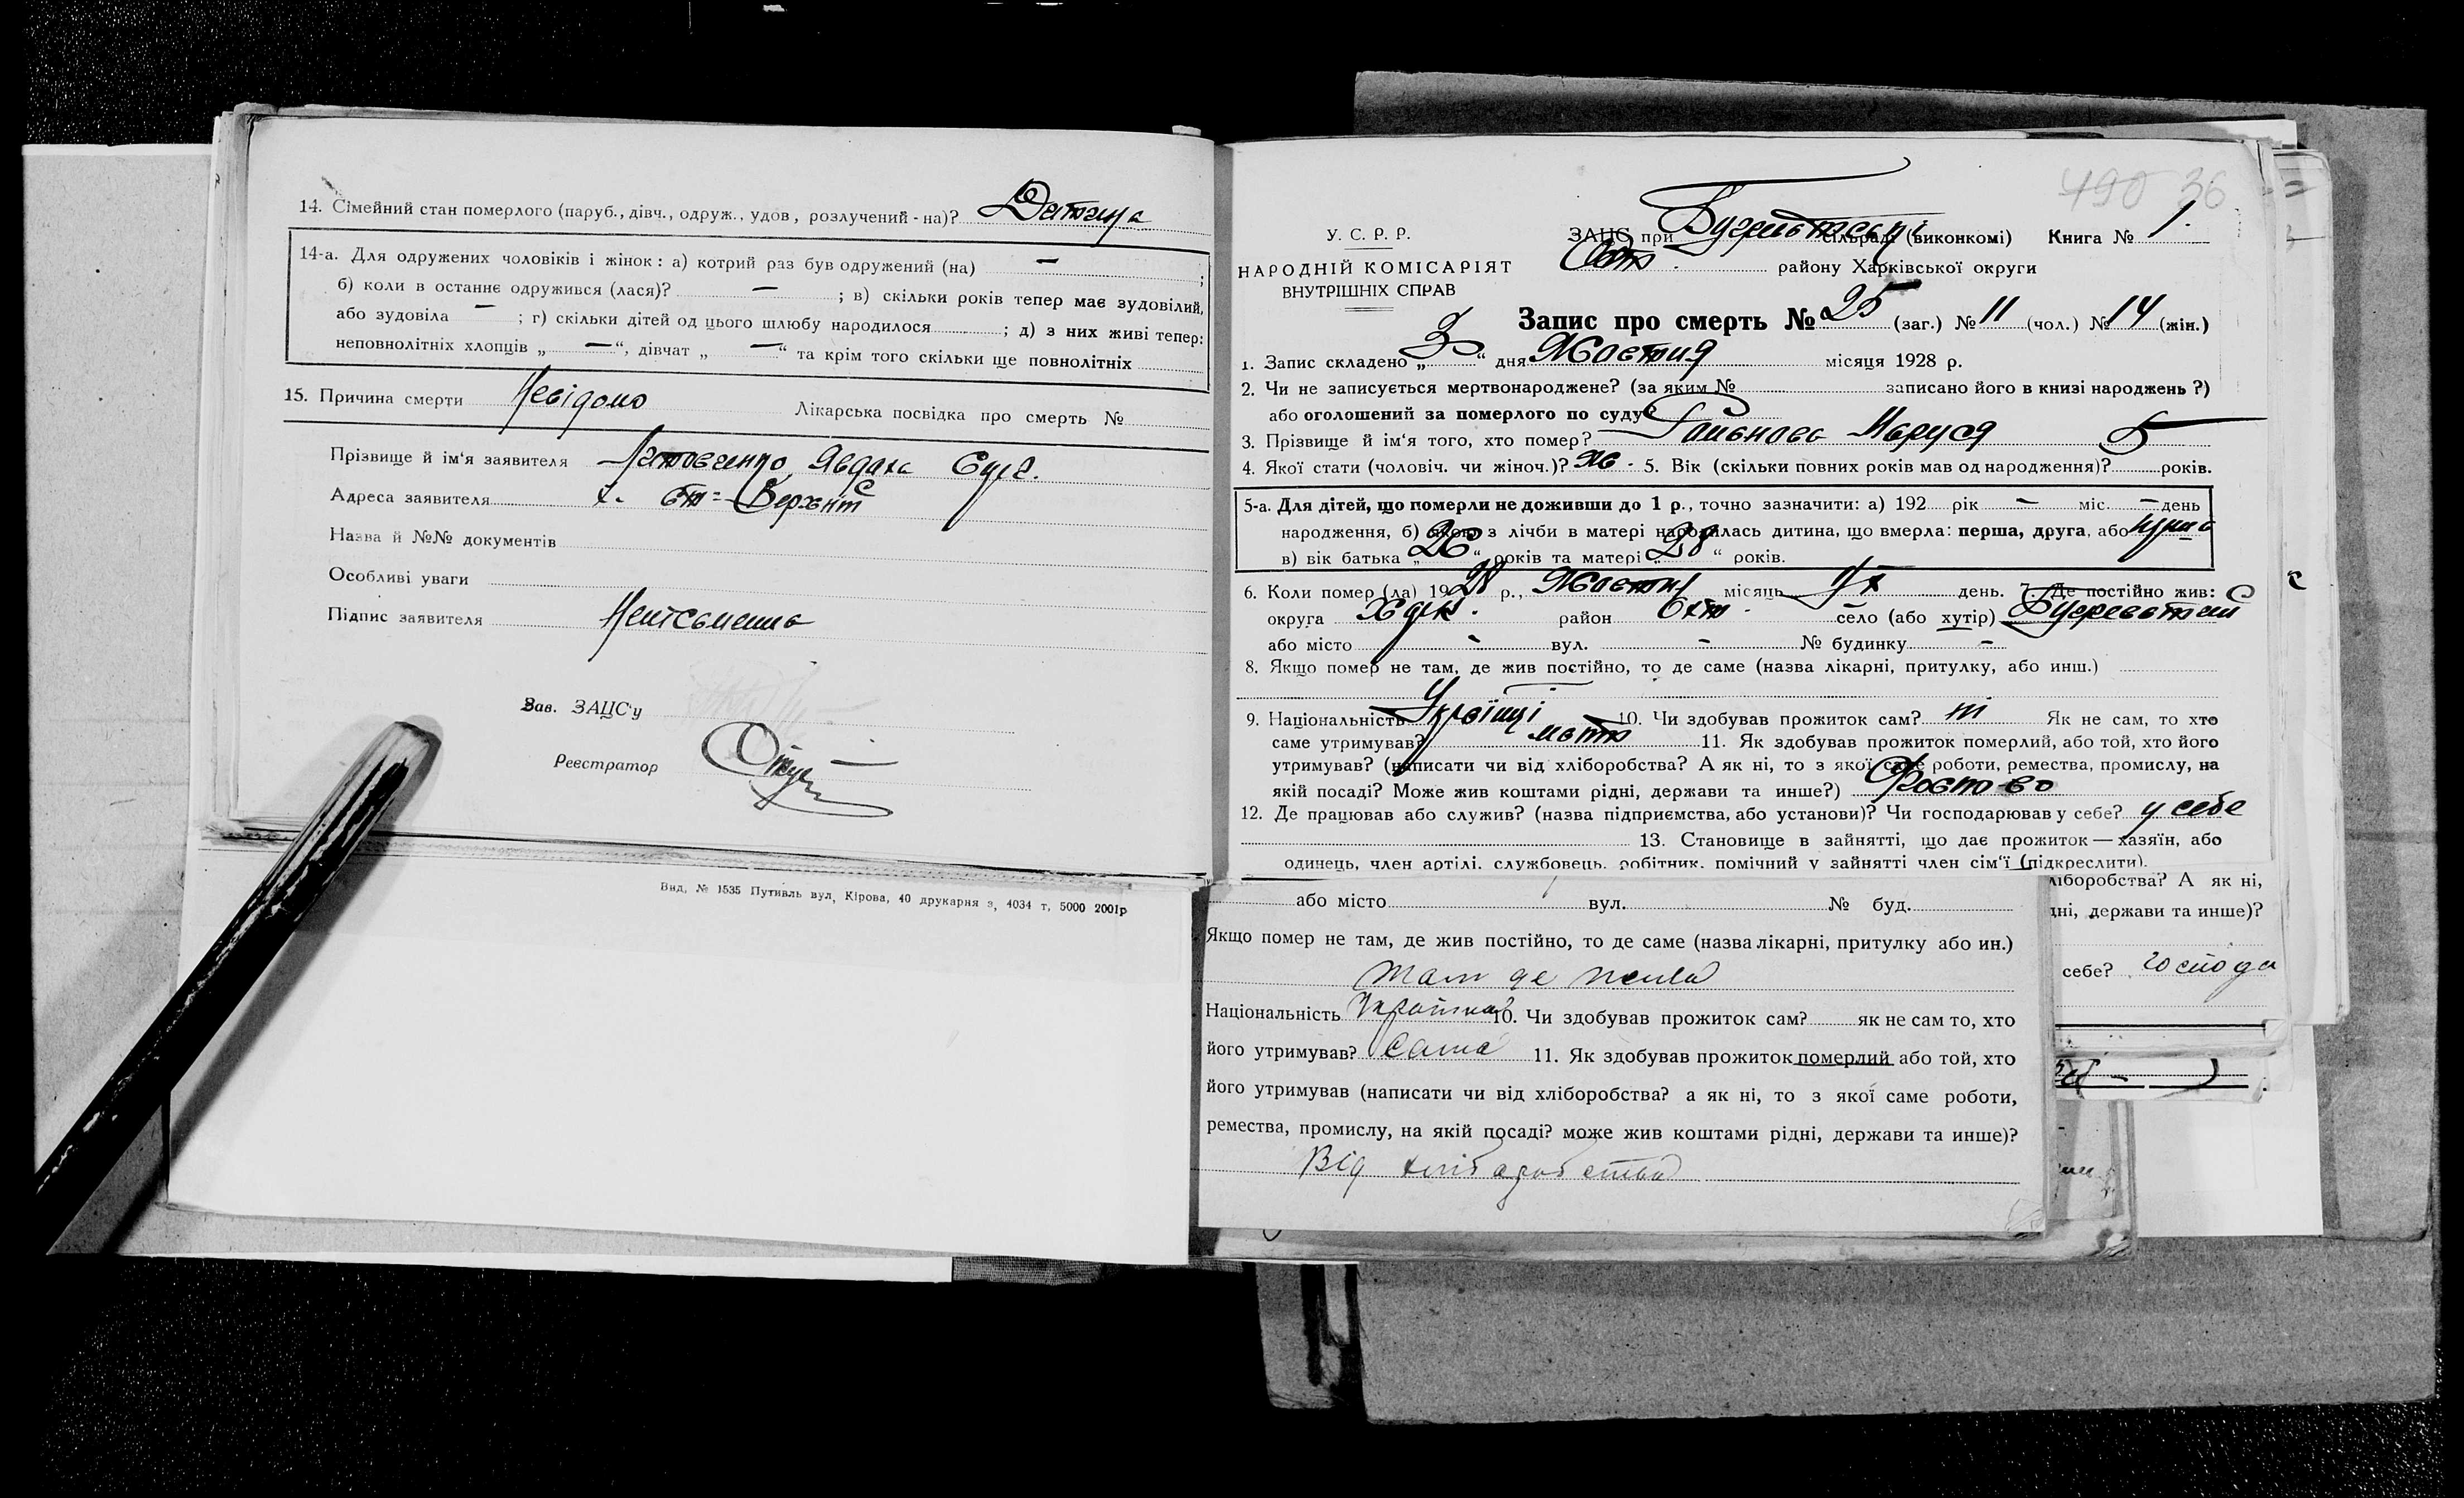 14. Сімейний стан померлого (паруб., дівч., одруж., удов, розлучений-на)? Дитина
14-а. Для одружених чоловіків і жінок: а) котрий раз був одружений (на) — ;
б) коли в останнє одружився (лася)? — ; в) скільки років тепер має зудовілий,
або зудовіла — ; г) скільки дітей од цього шлюбу народилося ; д) з них живі тепер:
неповнолітніх хлопців „ — “, дівчат „ — “ та крім того скільки ще повнолітніх
15. Причина смерти Невідомо Лікарська посвідка про смерть №
Прізвище й ім‘я заявителя Явдоха
Адреса заявителя
Назва й №№ документів
Особливі уваги
Підпис заявителя Неписьменна
Зав. ЗАЦС‘у
Реєстратор
Вид. № 1535 Путивль вул, Кірова, 40 друкарня з, 4034 т, 5000 2001р
490 36
У. С. Р. Р.
НАРОДНІЙ КОМІСАРІЯТ
ВНУТРІШНІХ СПРАВ
ЗАЦС при сільраді (виконкомі) Книга № 1.
Охт. району Харківської округи
Запис про смерть № 25 (заг.) № 11 (чол.) № 14 (жін.)
1. Запис складено „ 3 “ дня Жовтня місяця 1928 р.
2. Чи не записується мертвонароджене? (за яким № записано його в книзі народжень ?)
або оголошений за померлого по суду?
3. Прізвище й ім‘я того, хто помер? Маруся
4. Якої стати (чоловіч. чи жіноч.)? Ж. 5. Вік (скільки повних років мав од народження)? 5 років.
5-а. Для дітей, що померли не доживши до 1 р., точно зазначити: а) 192 рік — міс. — день
народження, б) якою з лічби в матері народилась дитина, що вмерла: перша, друга, або
в) вік батька „ 26 “ років та матері „ 28 “ років.
6. Коли помер (ла) 1928 р., Жовтня місяць день. 7. Де постійно жив:
округа Харк. район Охт. село (або хутір)
або місто - вул. - № будинку -
8. Якщо помер не там, де жив постійно, то де саме (назва лікарні, притулку, або инш.)
9. Національність 10. Чи здобував прожиток сам? ні Як не сам, то хто
саме утримував? мати 11. Як здобував прожиток померлий, або той, хто його
утримував? (написати чи від хліборобства? А як ні, то з якої саме роботи, ремества, промислу, на
якій посаді? Може жив коштами рідні, держави та инше?)
12. Де працював або служив? (назва підприємства, або установи)? Чи господарював у себе? у себе
13. Становище в зайнятті, що дає прожиток — хазяїн, або
одинець, член артілі, службовець, робітник, помічний у зайнятті член сім‘ї (підкреслити).
або місто вул. № буд.
Якщо помер не там, де жив постійно, то де саме (назва лікарні, притулку або ин.)
там де жила
Національність Українка 10. Чи здобував прожиток сам? як не сам то, хто
його утримував? сама 11. Як здобував прожиток померлий або той, хто
його утримував (написати чи від хліборобства? а як ні, то з якої саме роботи,
ремества, промислу, на якій посаді? може жив коштами рідні, держави та инше)?
Від хліборобства
ліборобства? А як ні,
дні, держави та инше)?
себе? господа